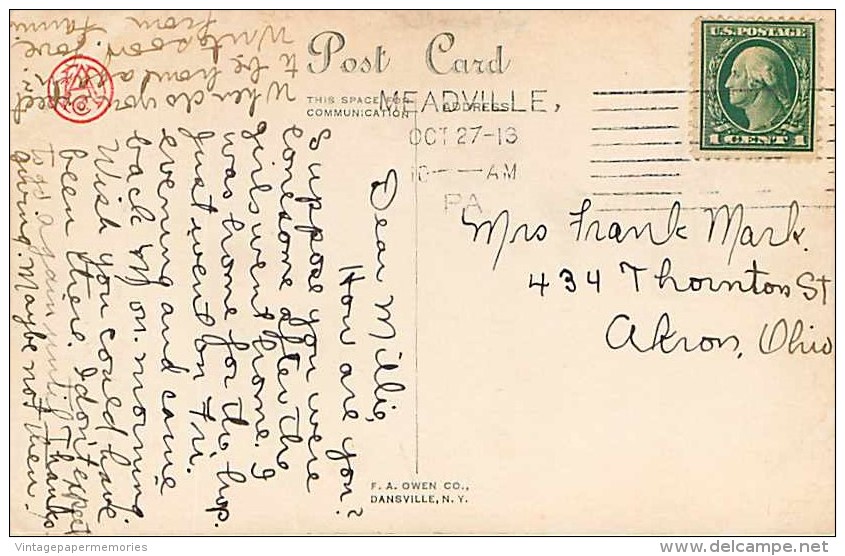 Post Card
THIS SPACE FOR
COMMUNICATION
ADDRESS
MEADVILLE,
OCT 27-13
10 — AM
PA
U.S. POSTAGE
1 CENT 1
Mrs Frank Mark.
434 Thornton St
Akron, Ohio
Dear Millie,
How are you?
Suppose you were
lonesome after the
girls went home. I
was home for the hop.
Just went on Fri.
evening and came
back Mon. morning.
Wish you could have
been there. I don't expect
to go again until Thanks
giving. Maybe not then.
When do you expect
to be home again?
Write soon. Love
from
F. A. OWEN CO.,
DANSVILLE, N. Y.
Vintagepapermemories
delcampe.net